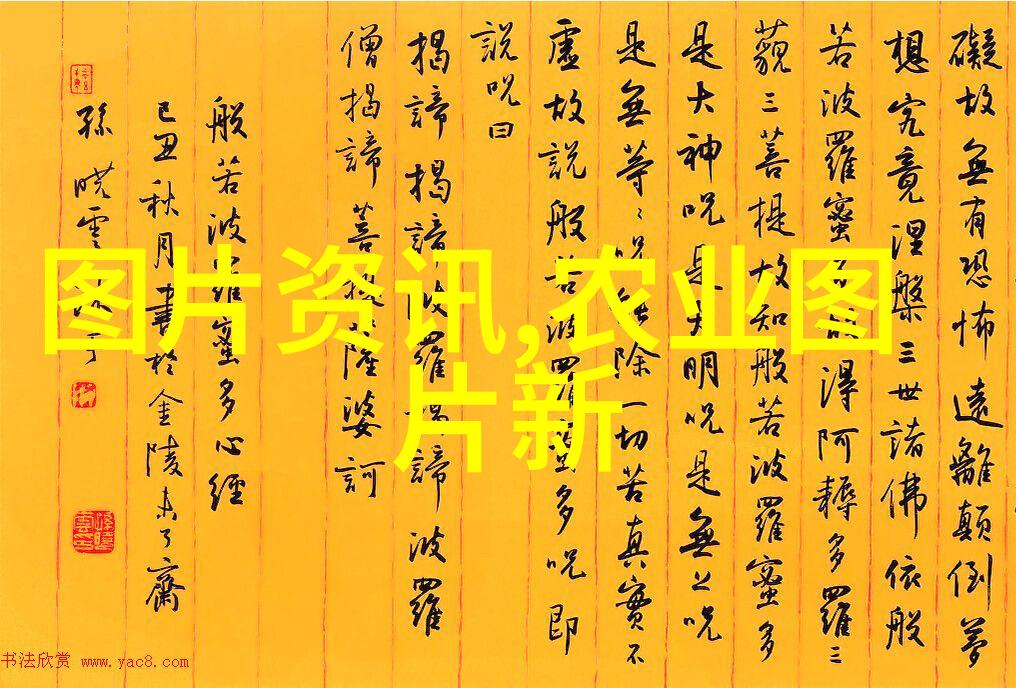 礙故無有恐怖遠離顛倒夢
想究竟涅槃三世諸佛依般
若波羅蜜多故得阿耨多羅三
藐三菩提故知般若波羅蜜多
是大神呪是大明呪是無上呪
是無等〻呪能除一切苦真實不
虛故説般若波羅蜜多呪即
説呪曰
揭諦揭諦波羅揭諦波羅
僧揭諦菩提薩婆訶
般若波羅蜜多心經
己丑秋月書於金陵未了齋
孫曉雲
图片资讯,农业图
片新
书法欣赏 www.yac8.com